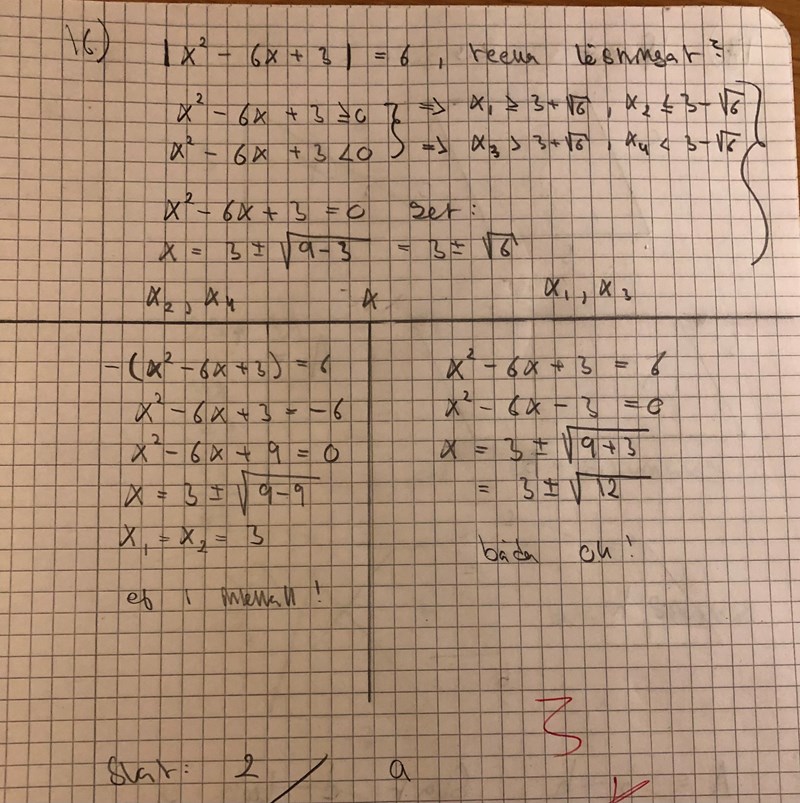 16) |x² - 6x + 3| = 6 , reella lösningar?
x² - 6x + 3 ≥ 0 } => x₁ ≥ 3+√6 , x₂ ≤ 3-√6
x² - 6x + 3 < 0 } => x₃ > 3+√6 , x₄ < 3-√6
x² - 6x + 3 = 0 ger:
x = 3 ± √(9-3) = 3 ± √6
x₂, x₄ x x₁, x₃
-(x² - 6x + 3) = 6
x² - 6x + 3 = -6
x² - 6x + 9 = 0
x = 3 ± √(9-9)
x₁ = x₂ = 3
ej i intervall!
x² - 6x + 3 = 6
x² - 6x - 3 = 0
x = 3 ± √(9+3)
= 3 ± √12
båda ok!
3
Svar: 2 / a